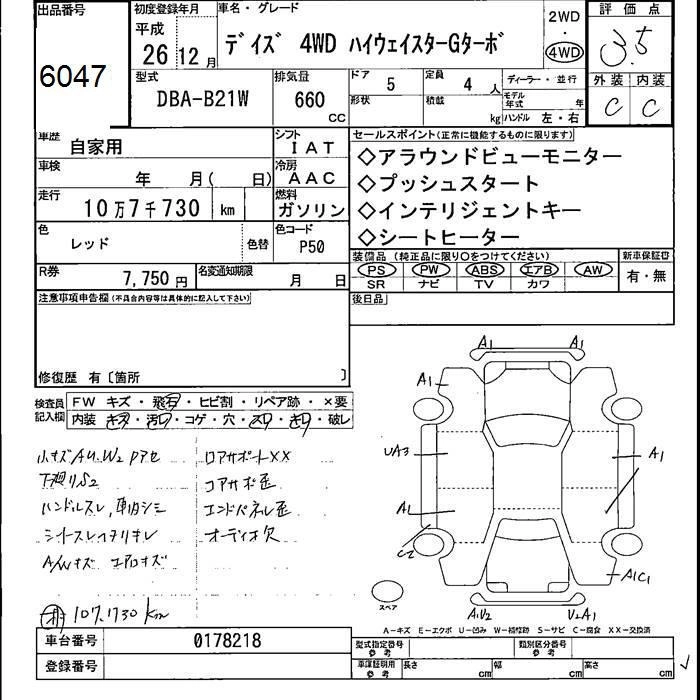 出品番号
6047
初度登録年月
平成
26 12月
車名・グレード
デイズ 4WD ハイウェイスターGターボ
2WD
・
4WD
評価点
3.5
外装 内装
C C
型式
DBA-B21W
排気量
660 CC
ドア 5
定員 4 人
形状
積載 kg
ディーラー・並行
モデル年式 年
ハンドル 左・右
車歴
自家用
シフト
IAT
車検
年 月( 日)
冷房
AAC
走行
10万7千730 km
燃料
ガソリン
色
レッド
色替
色コード
P50
R券
7,750円
名変通知期限
月 日
セールスポイント(正常に機能するものに限ります)
◇アラウンドビューモニター
◇プッシュスタート
◇インテリジェントキー
◇シートヒーター
装備品 (純正品に限り○をつけてください)
PS PW ABS エアB AW
SR ナビ TV カワ
新車保証書
有・無
後日品
注意事項申告欄(不具合内容等は具体的に記入して下さい)
修復歴 有〔箇所 〕
検査員
記入欄
FW キズ・飛石・ヒビ割・リペア跡・×要
内装 キズ・汚れ・コゲ・穴・スレ・きり・破レ
小キズAU.W2 アセ
下廻りS2
ハンドルスレ,車内シミ
シートスレ
A/Wキズ エアロキズ
ロアサポートXX
コアサポ歪
エンドパネル歪
オーディオ欠
107,730km
A1 A1
A1
UA3
A1
A1
C2
A1C1
A1U2 U2A1
スペア
A―キズ E―エクボ U―凹み W―補修跡 S―サビ C―腐食 XX―交換済
車台番号 0178218
登録番号
型式指定番号 参考
類別区分番号 参考
車庫証明用 参考
長さ cm
幅 cm
高さ cm